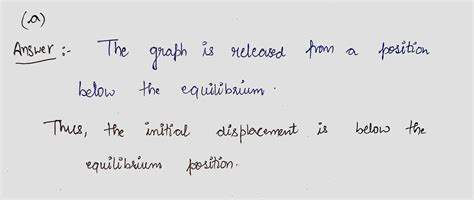 (a)
Answer :- The graph is released from a position
below the equilibrium.
Thus, the initial displacement is below the
equilibrium position.